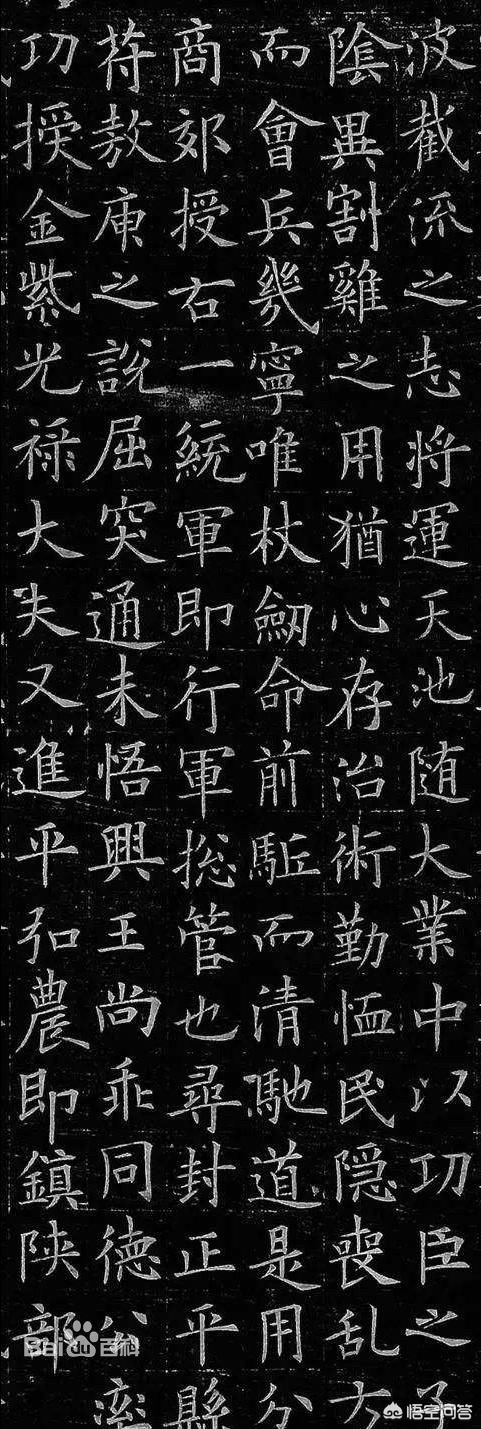 波截流之志将運天池随大業中以功臣之子
陰異割雞之用猶心存治術勤恤民隠喪乱大
而會兵幾寧唯杖劒命前駈而清馳道是用分
商郊授右一統軍即行軍揔管也尋封正平縣
苻敖庾之說屈突通未悟興王尚乖同德公率
功授金紫光禄大夫又進平弘農即鎮陝部
Bai百科
悟空问答